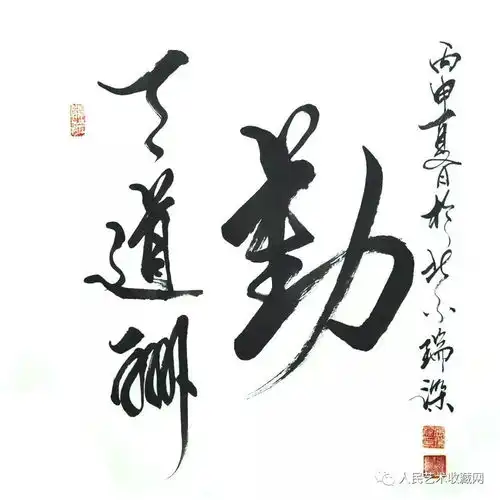 天道酬
勤
丙申夏日於北京瑞濼
人民艺术收藏网